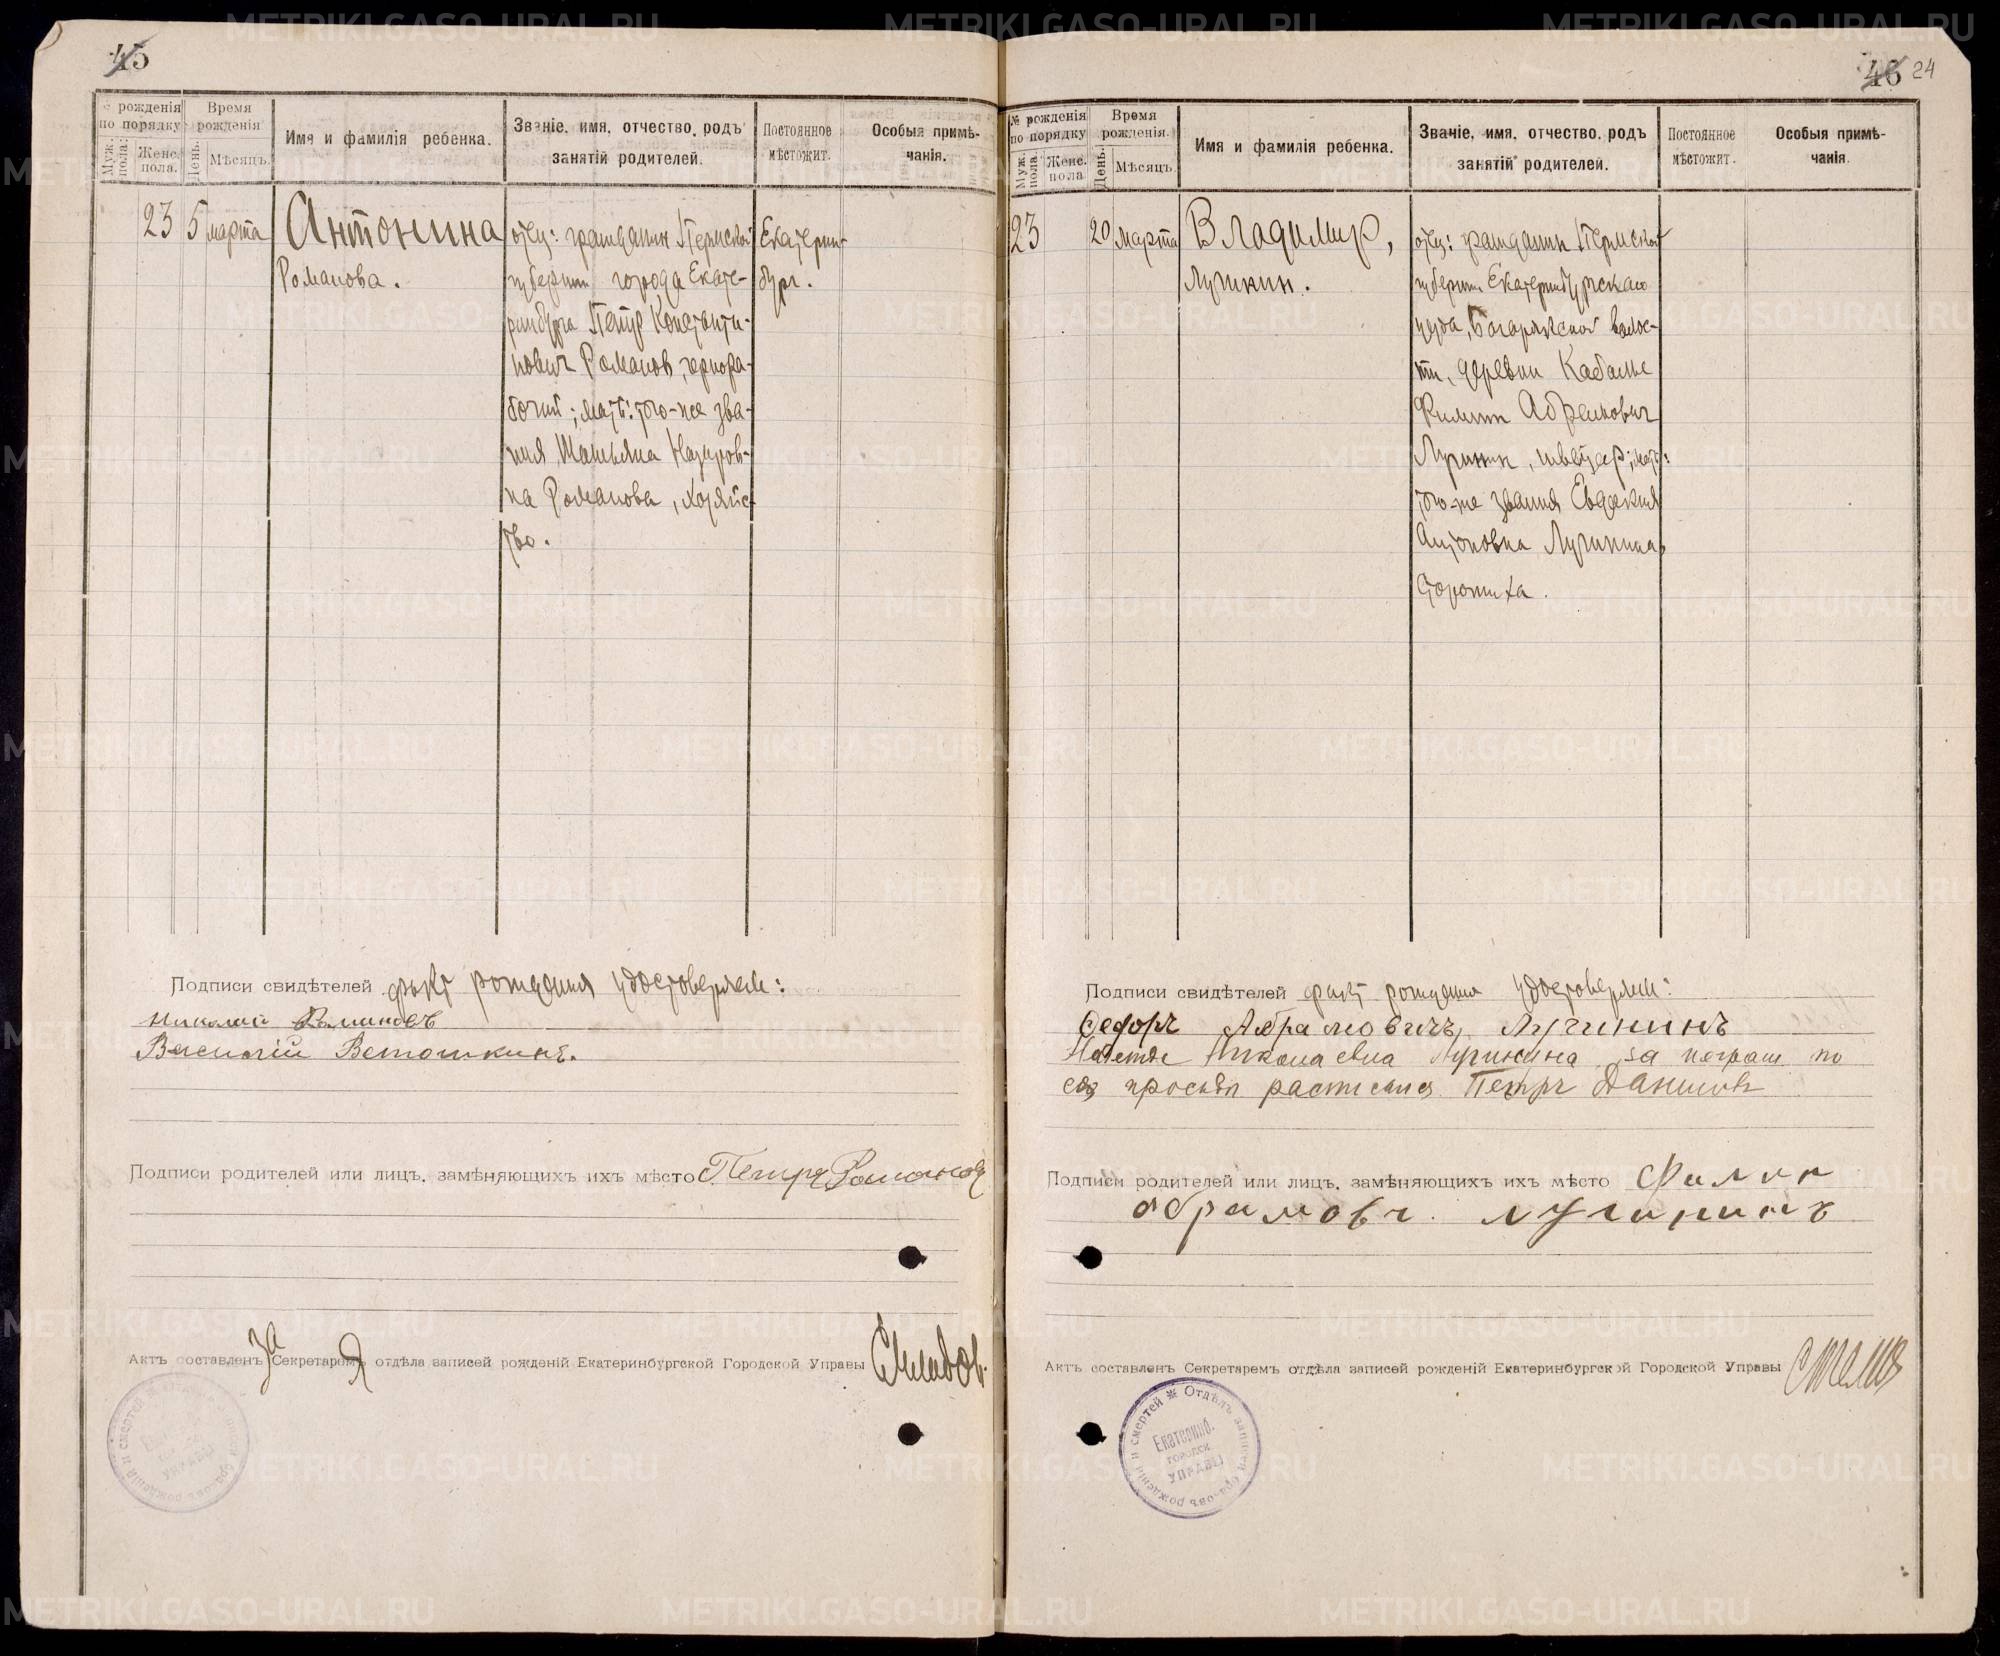 45
№ рожденія по порядку
Муж. пола.
Женс. пола.
Время рожденія
День.
Мѣсяцъ.
Имя и фамилія ребенка.
Званіе, имя, отчество, родъ
занятій родителей.
Постоянное
мѣстожит.
Особыя примѣ-
чанія.
23 5 марта
Антонина
Романова.
отец: гражданин Пермской
губернии города Екате-
ринбурга Петр Константи-
нович Романов, чернора-
бочий; мать: того-же зва-
ния Татьяна Назаров-
на Романова, хозяйс-
тво.
Екатерин-
бург.
Подписи свидѣтелей факт рождения удостоверяем:
Николай Романовъ
Василій Ветошкинъ.
Подписи родителей или лицъ, замѣняющихъ ихъ мѣсто Петръ Романовъ
Актъ составленъ за Секретаря отдѣла записей рожденій Екатеринбургской Городской Управы
46 24
№ рожденія по порядку
Муж. пола.
Женс. пола
Время рожденія.
День.
Мѣсяцъ.
Имя и фамилія ребенка.
Званіе, имя, отчество, родъ
занятій родителей.
Постоянное
мѣстожит.
Особыя примѣ-
чанія.
23 20 марта
Владимир,
Лучинин.
отец: гражданин Пермской
губернии Екатеринбургскаго
уезда, Багарякской волос-
ти, деревни
Филипп Абрамович
Лучинин, швейцар; мать:
того-же звания Евдокия
Антоновна Лучинина,
сторожиха.
Подписи свидѣтелей факт рождения удостоверяем:
Федоръ Абрамовичъ Лучининъ
Николаевна Лучинина за неграм по
ея прозьбѣ росписался Петръ
Подписи родителей или лицъ, замѣняющихъ ихъ мѣсто Филип
абрамовъ лучининъ
Актъ составленъ Секретаремъ отдѣла записей рожденій Екатеринбургской Городской Управы
Отдѣлъ записи браковъ рожденій и смертей
Екатеринб.
городск.
УПРАВЫ
METRIKI.GASO-URAL.RU